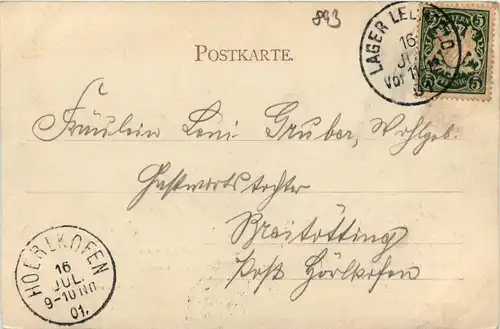 893
POSTKARTE.
LAGER LECHFELD
16
JUL
Vor 11
01
BAYERN
5 5
PFENNIG
5 5
Fräulein Leni Gruber, Wohlgeb.
Gastwirtstochter
Breitötting
Post Hörlkofen
HOERLKOFEN
16
JUL.
9-10 Nm
01.